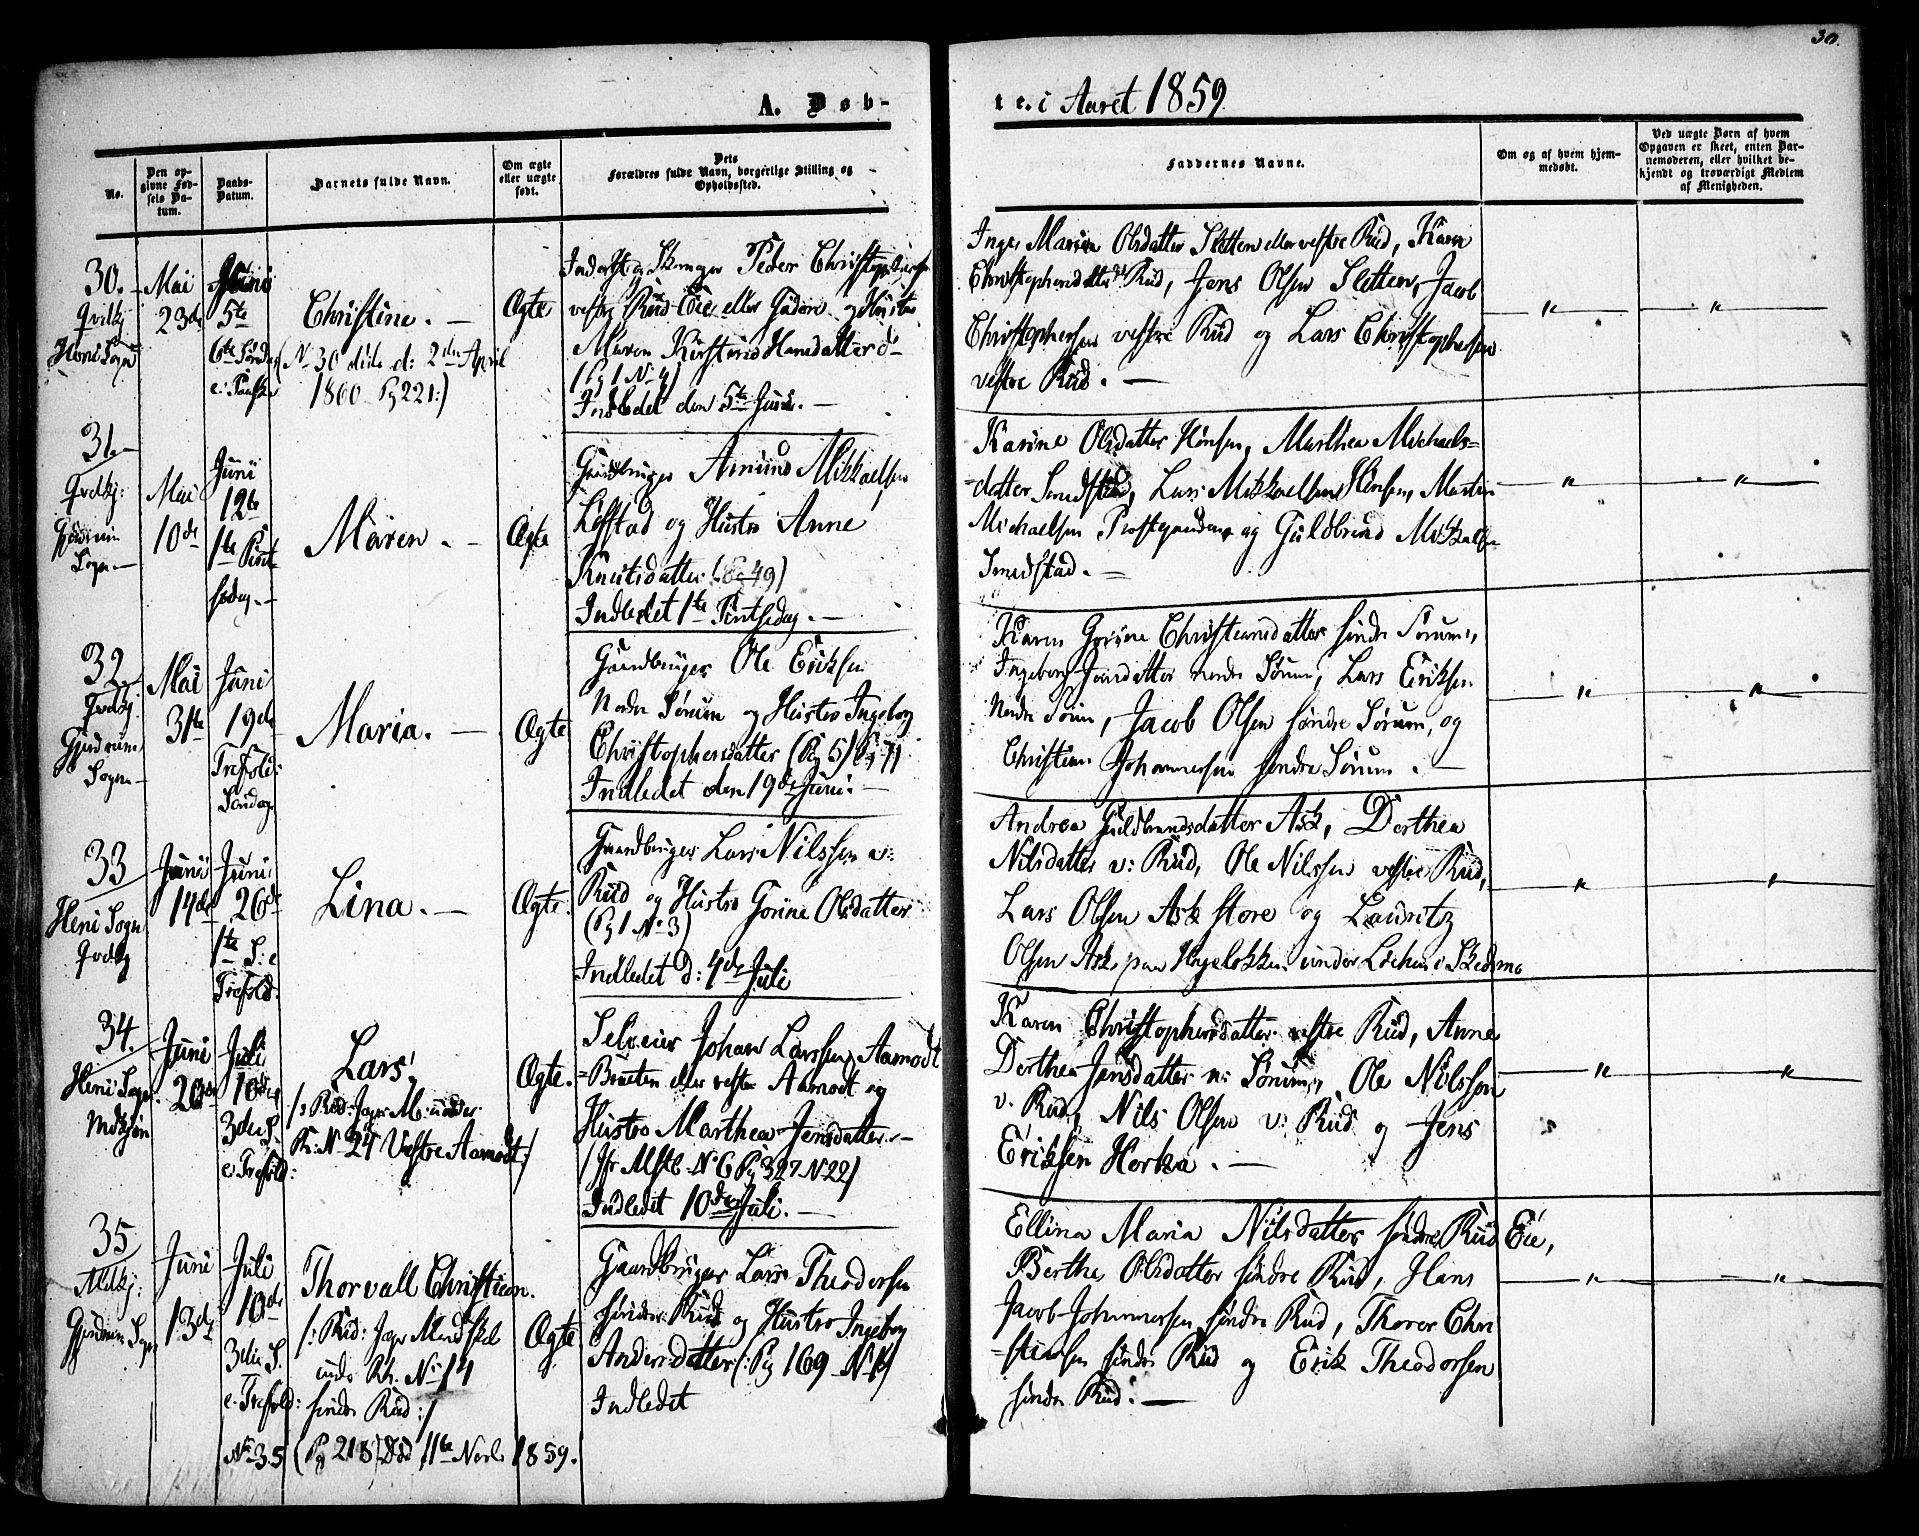 30.
A. Døb-
te. i Aaret 1859
No.
Den op-
givne Fød-
sels Da-
tum.
Daabs-
Datum.
Barnets fulde Navn.
Om ægte
eller uægte
født.
Dets
Forældres fulde Navn, borgerlige Stilling og
Opholdssted.
Faddernes Navne.
Om og af hvem hjem-
medøbt.
Ved uægte Børn af hvem
Opgaven er skeet, enten Bar-
nemoderen, eller hvilket be-
kjendt og troværdigt Medlem
af Menigheden.
30.
Qvdkj
Heni Sogn
Mai
23de
Juni
5te
6te Sønd
e: Paaske
Christine. —
(No 30 døde d: 2den April
1860 Pg 221:)
Ægte
Inderst og Skræger Peder Christophersen
vestre Rud Eie eller Gaderen og Hustro
Maren Kirstine Hansdatter
(Pg 1 No 4)
Indledet den 5te Juni. —
Inger Maria Olsdatter Sletten eller vestre Rud, Karen
Christophersdatter Rud, Jens Olsen Sletten, Jacob
Christophersen vestre Rud og Lars Christophersen
vestre Rud. —
31.
Qvdkj:
Gjerdrum
Sogn. —
Mai
10de
Juni
12te
1te Pint-
sedag. —
Maren. —
Ægte
Gaardbruger Amund Mikkaelsen
Løfstad og Hustro Anne
Knutsdatter (Pg 49)
Indledet 1te Pintsedag. —
Karine Olsdatter Hønsen, Marthea Michaels-
-datter Smedstad, Lars Mikkaelsen Hønsen, Martin
Michaelsen og Guldbrand Mikkelsen
Smedstad. —
32.
Qvdkj.
Gjerdrum
Sogn —
Mai
31te
Juni
19de
Trefold:
Søndag
Maria. —
Ægte
Gaardbruger Ole Eriksen
Nordre Sørum og Hustro Ingeborg
Christophersdatter (Pg 5) Pg 71
Indledet den 19de Juni. —
Karen Gorine Christiansdatter søndre Sørum,
Ingeborg Jensdatter nordre Sørum, Lars Eriksen
Nordre Sørum, Jacob Olsen søndre Sørum, og
Christian Johannesen søndre Sørum. —
33
Heni Sogn
Qvdkj
Juni
14de
Juni
26de
1te S: e
Trefold.
Lina. —
Ægte.
Gaardbruger Lars Nilssen v:
Rud og Hustro Gorine Olsdatter
(Pg 1 No 3)
Indledet d: 4de Juli
Andrea Guldbrandsdatter Ask, Dorthea
Nilsdatter v: Rud, Ole Nilssen vestre Rud,
Lars Olsen Ask store og Lauritz
Olsen Ask, paa under i Skedsmo
34.
Heni Sogn.
Mdkjøn
Juni
20de
Juli
10de
3die S.
e. Trefold:
Lars,
/: Rud: Mandss
R: No 24 Vestre Aamodt:/
Ægte.
Selveier Johan Larssen Aamodt
-Braaten eller vestre Aamodt og
Hustro Marthea Jensdatter. —
/ Jfr Mstb. No 6 Pg 327 No 22/
Indledet 10de Juli. —
Karen Christophersdatter vestre Rud, Anne
Dorthea Jensdatter n: Sørum, Ole Nilssen
v. Rud, Nils Olsen v: Rud og Jens
Eriksen Horka. —
35
Mdkj:
Gjerdrum Sogn
Juni
13de
Juli
10de
3die S.
e. Trefold:
Thorvall Christian.
/: Rud: Jagr Mandskab
under Rk. No 14
søndre Rud:/
No 35 (Pg 218) Død 11te Novb. 1859.
Ægte
Gaardbruger Lars Theodorsen
søndre Rud og Hustro Ingeborg
Andersdatter (: Pg 169 No 1)
Indledet
Ellina Maria Nilsdatter søndre Rud Eie,
Berthe Olsdatter søndre Rud, Hans
Jacob Johannesen søndre Rud, Thorer Chri
-stiansen søndre Rud og Erik Theodorsen
søndre Rud. —